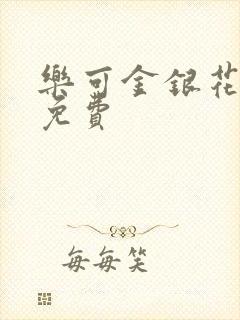 樂可金銀花
免費
每每笑